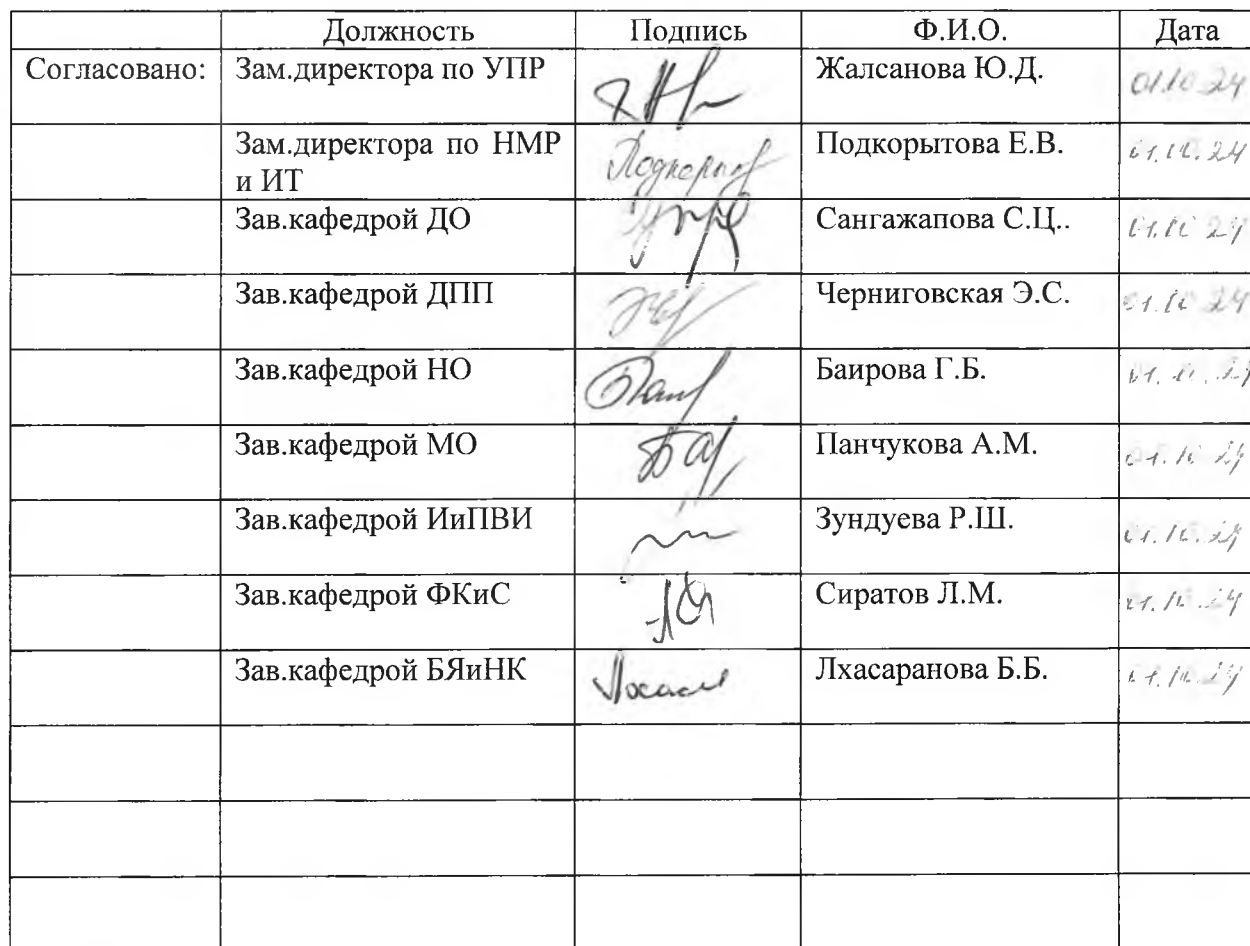 Должность Подпись Ф.И.О. Дата
Согласовано: Зам.директора по УПР Жалсанова Ю.Д. 01.10.24
Зам.директора по НМР Подкорытова Е.В. 01.10.24
и ИТ
Зав.кафедрой ДО Сангажапова С.Ц.. 01.10.24
Зав.кафедрой ДПП Черниговская Э.С. 01.10.24
Зав.кафедрой НО Баирова Г.Б. 01.10.24
Зав.кафедрой МО Панчукова А.М. 01.10.24
Зав.кафедрой ИиПВИ Зундуева Р.Ш. 01.10.24
Зав.кафедрой ФКиС Сиратов Л.М. 01.10.24
Зав.кафедрой БЯиНК Лхасаранова Б.Б. 01.10.24